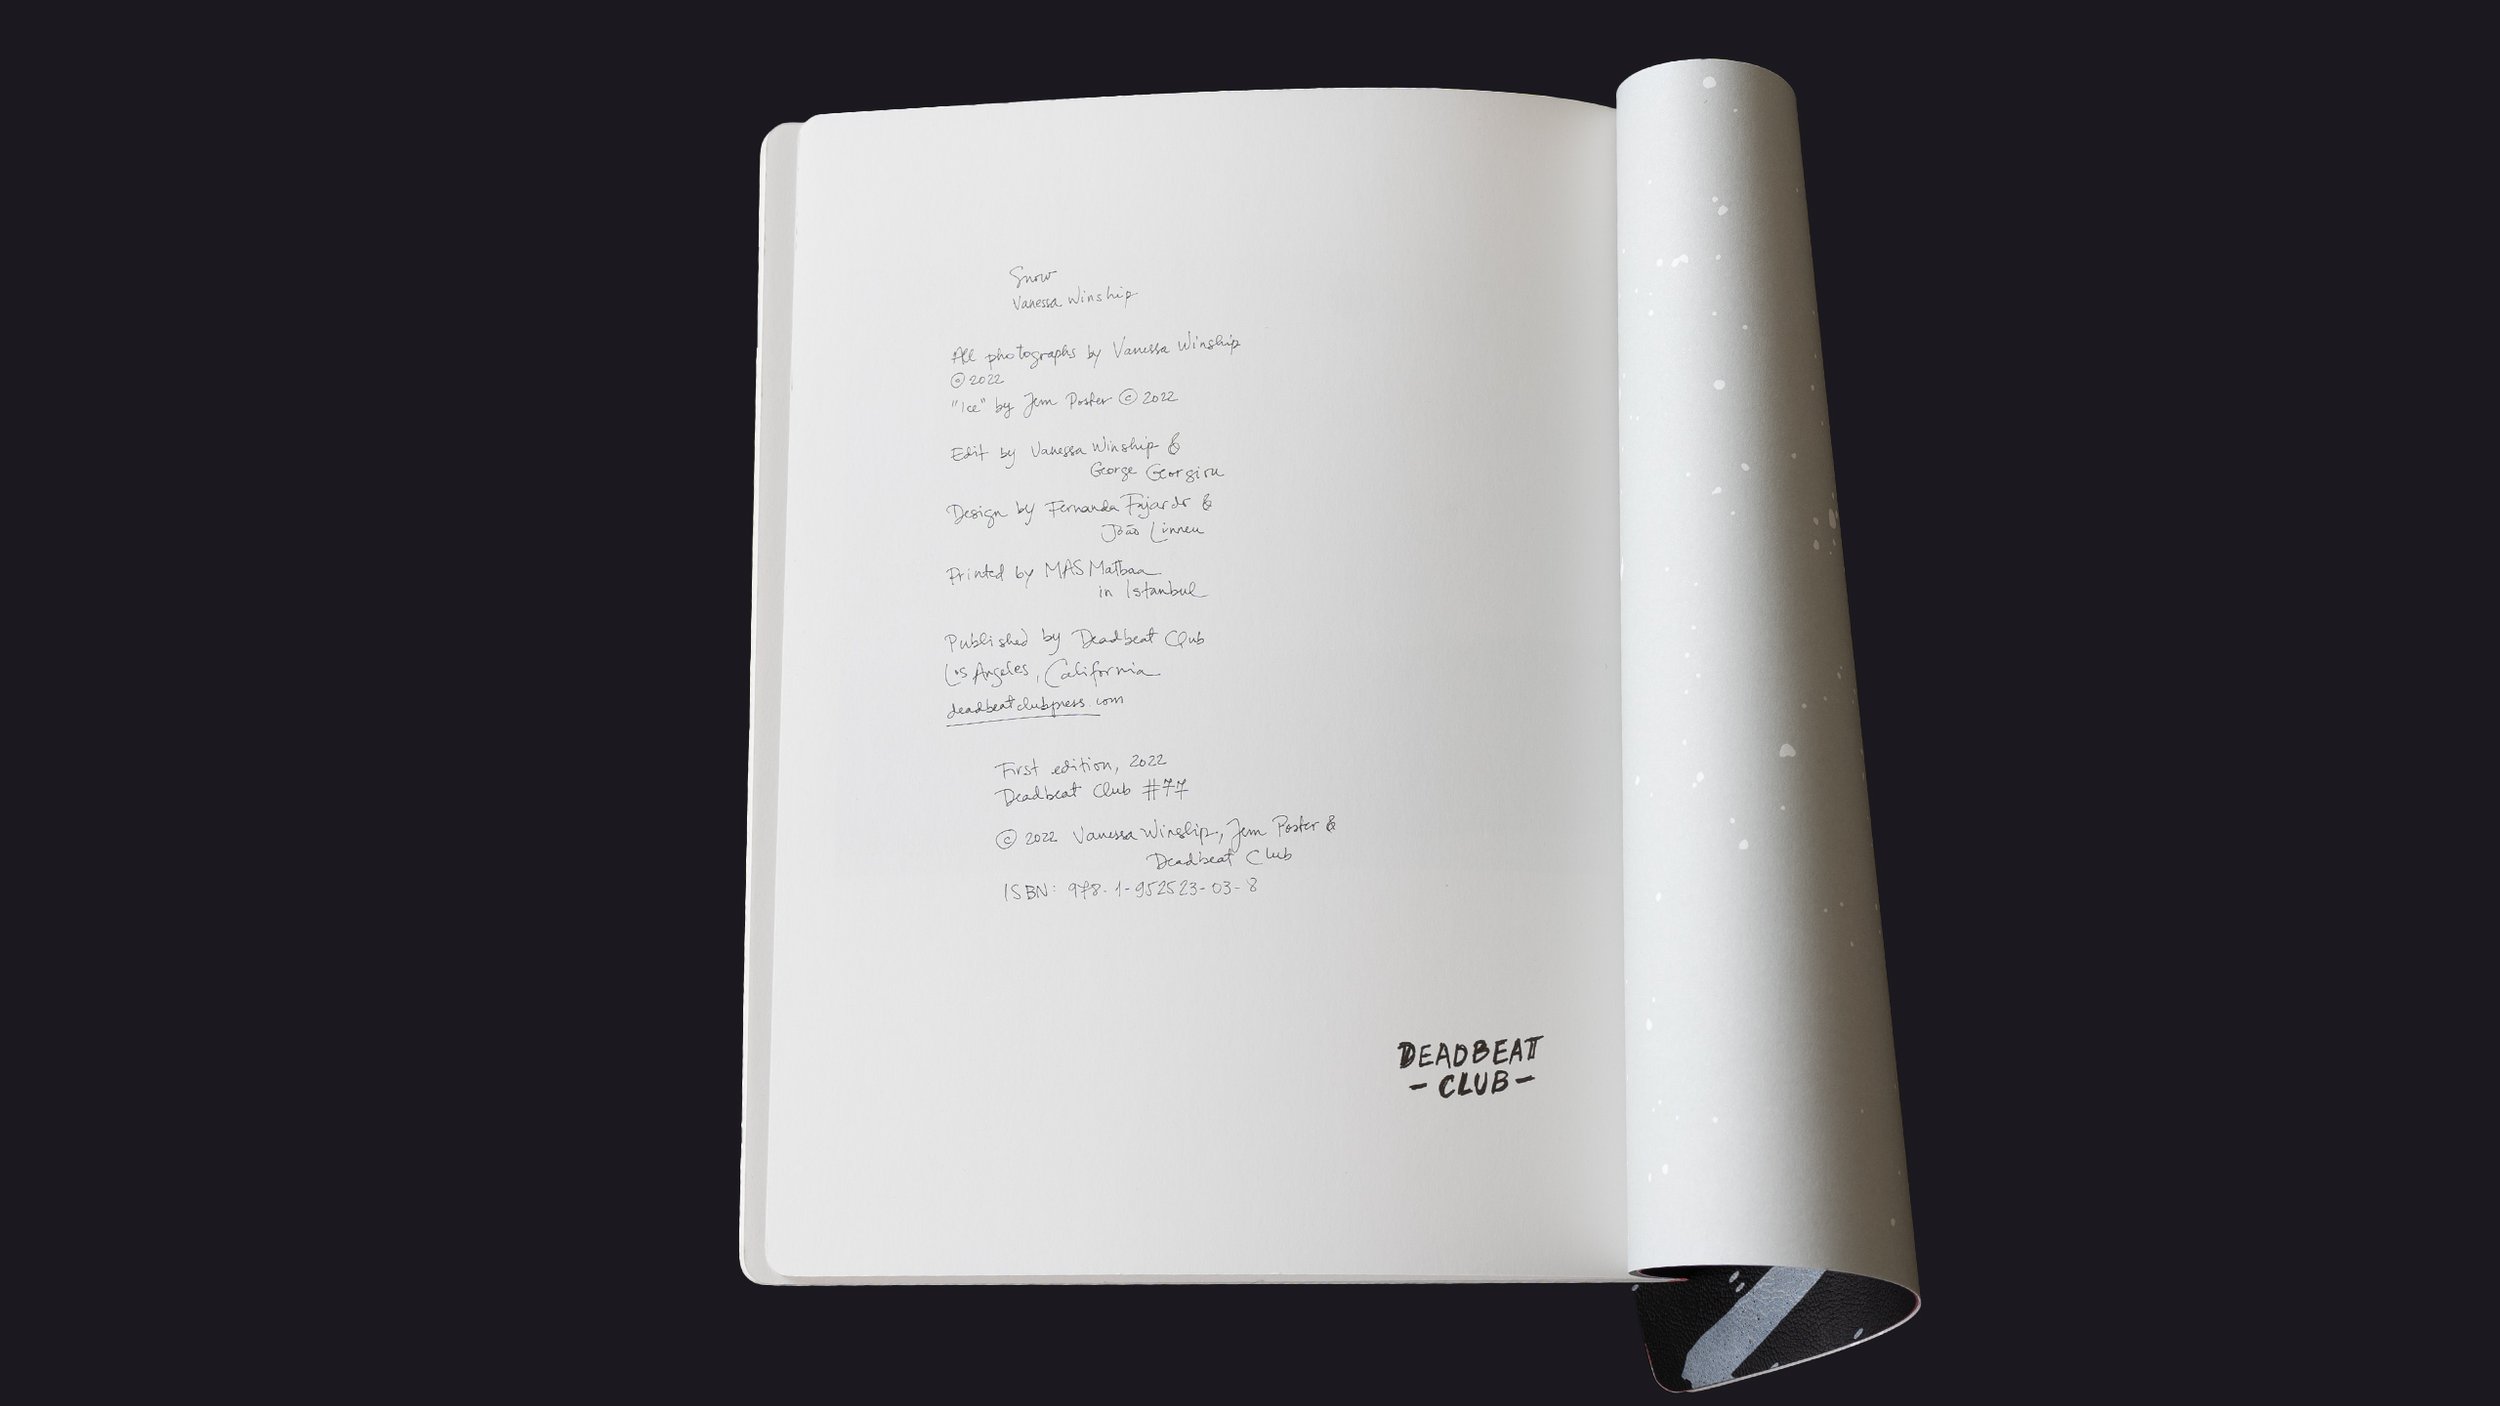 Snow
Vanessa Winship
All photographs by Vanessa Winship
© 2022
"Ice" by Jem Poster © 2022
Edit by Vanessa Winship &
George Georgiou
Design by Fernanda Fajardo &
João Linneu
Printed by MAS Matbaa
in Istanbul
Published by Deadbeat Club
Los Angeles, California
deadbeatclubpress.com
First edition, 2022
Deadbeat Club #77
© 2022 Vanessa Winship, Jem Poster &
Deadbeat Club
ISBN: 978-1-952523-03-8
DEADBEAT
- CLUB -